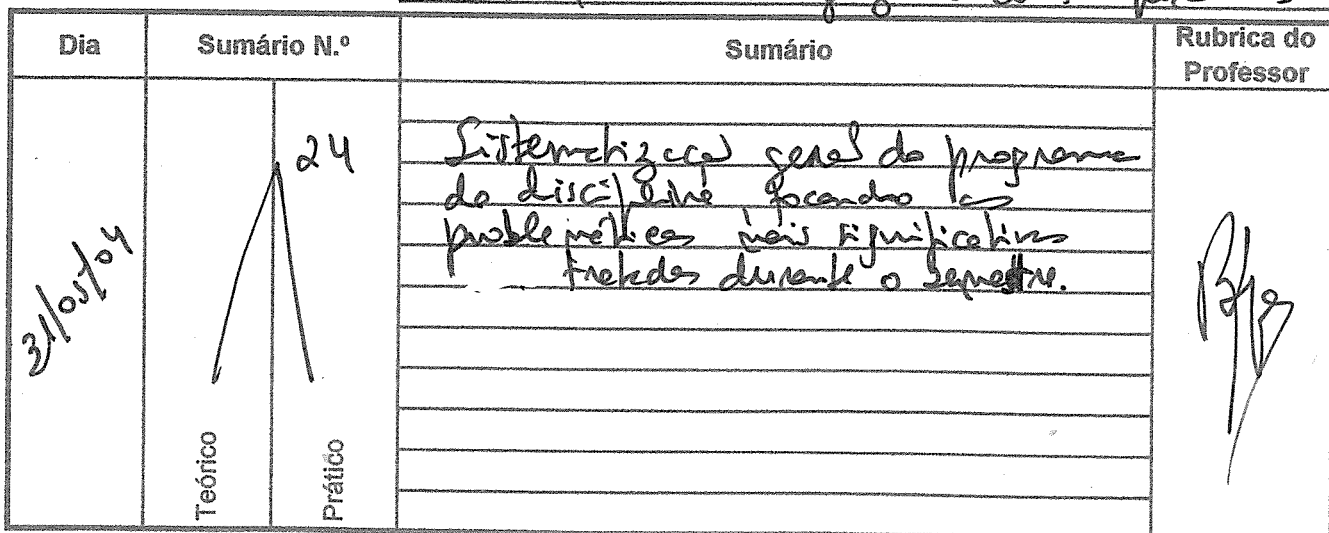 Dia
Sumário N.º
Sumário
Rubrica do
Professor
31/05/04
24
Sistematização geral do programa
da disciplina focando as
problemáticas mais significativas
tratadas durante o semestre.
Teórico
Prático